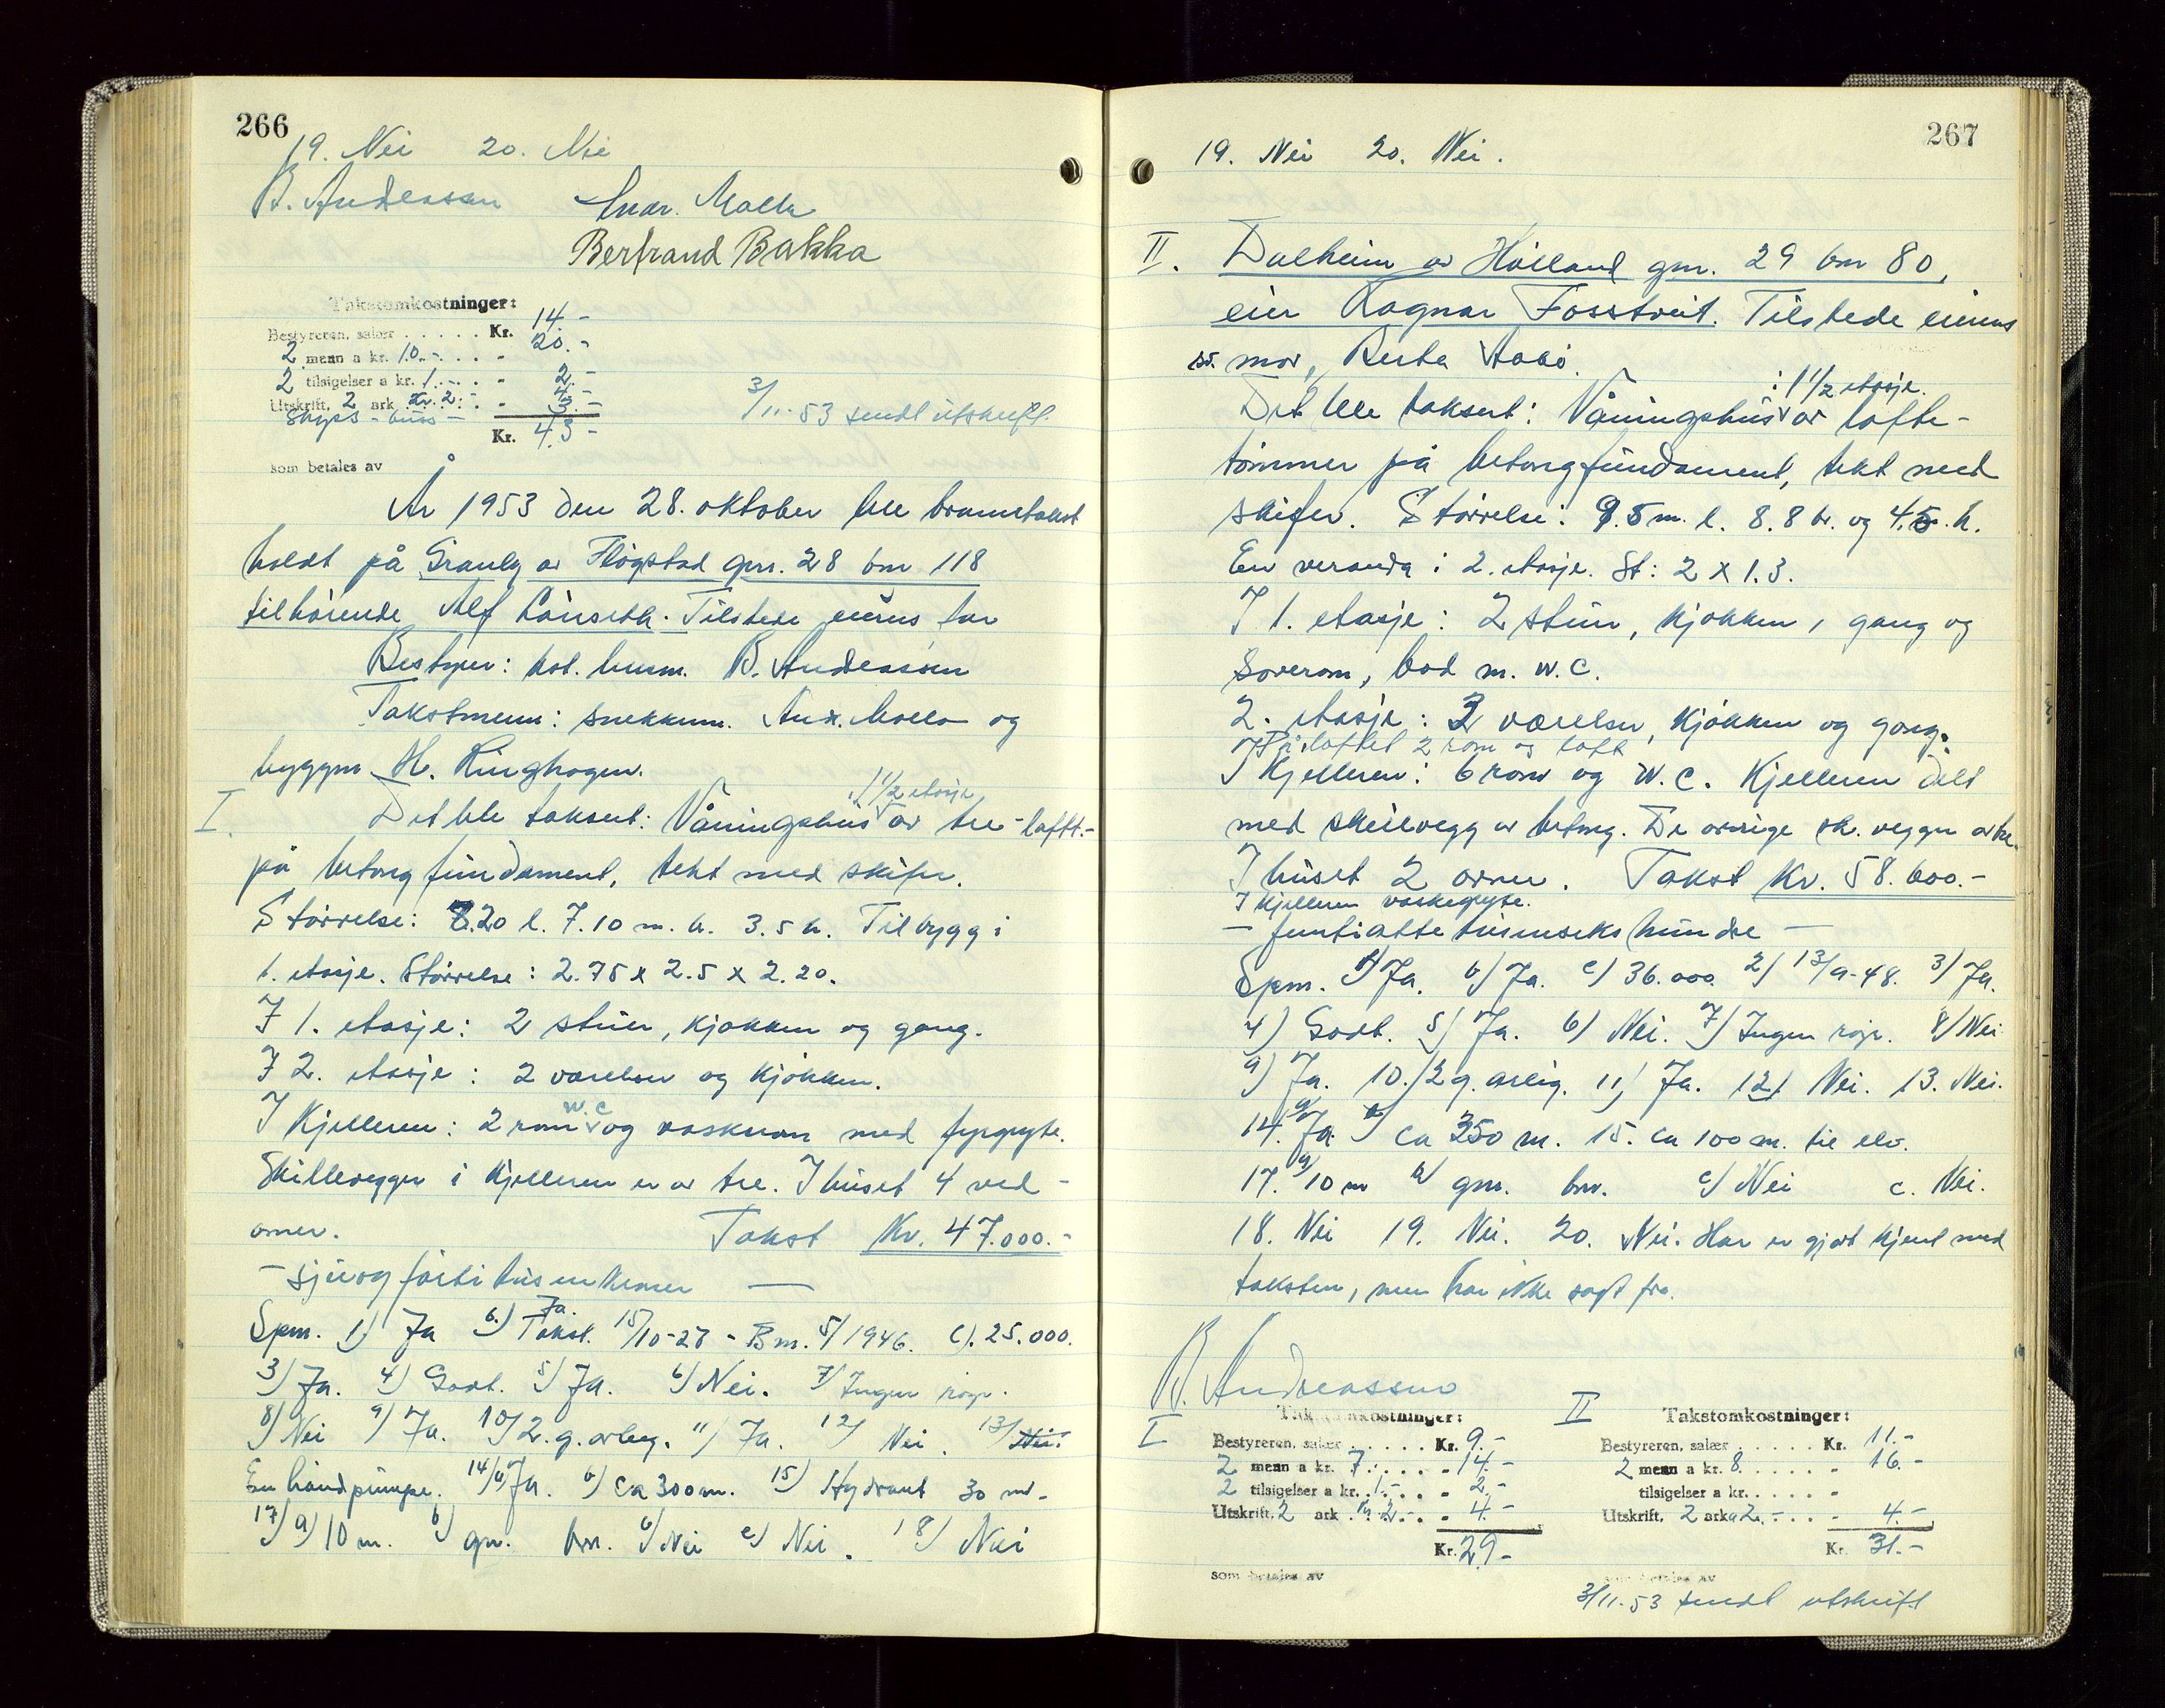 266
19. Nei 20. Nei
B. Andreassen
Bertrand Bakka
Takstomkostninger:
Bestyreren, salær ..... Kr. 14.-
2 menn a kr. 10.- ... - 20.-
2 tilsigelser a kr. 1.- .. - 2.-
Utskrift, 2 ark kr. 2.- . -
Skyss - buss - 3.-
3/11-53 sendt utskrift.
Kr. 43-
som betales av
År 1953 den 28. oktober ble branntakst
holdt på Granly av Fløgstad gnr. 28 bnr 118
tilhørende Alf Lönseth. Tilstede eierens far
Bestyrer: B. Andreassen
Takstmenn: snekkerm. og
byggm. H. Ringhagen.
: 1 1/2 etasje
I. Det ble taksert: Våningshus av tre - laft.-
på betong fundament, tekt med skifer.
Størrelse: 8.20 l. 7.10 m. b. 3.5 h. Tilbygg i
1. etasje. Størrelse: 2.75 x 2.5 x 2.20.
I 1. etasje: 2 stuer, kjøkken og gang.
I 2. etasje: 2 værelser og kjøkken.
I Kjelleren: 2 rom w.c og vaskerom med fyrgryte.
Skillevegger i kjelleren er av tre. I huset 4 ved-
ovner. Takst Kr. 47.000.-
- sju og førti tusen kroner -
Spm. 1) Ja b.) Ja. Takst. 15/10-27 - Bm. 5/1946. c). 25.000.
3) Ja. 4) Godt. 5) Ja. 6) Nei. 7) Ingen
8) Nei 9) Ja. 10) 2. g. årleg. 11) Ja. 12) Nei. 13) Nei.
En håndpumpe. 14) a) Ja. b) ca 300 m. 15) Hydrant 30 m.
17) a) 10 m. b) gnr. bnr. c) Nei e) Nei. 18) Nei
267
19. Nei 20. Nei.
II. Dalheim av Håland gnr. 29 bnr 80,
eier Ragnar Fosstveit. Tilstede eierens
mor, Berta
: 1 1/2 etasje.
Det ble taksert: Våningshus av lafte-
tømmer på betongfundament, tekt med
skifer. Størrelse: 9.5 m. l. 8.8 br. og 4.5 h.
En veranda i 2. etasje. St: 2 x 1.3.
I 1. etasje: 2 stuer, kjøkken, gang og
Soverom, bad m. w.c.
2. etasje: 3 værelser, kjøkken og gang.
På loftet 2 rom og loft
I Kjelleren: 6 rom og w.c. Kjelleren delt
med skillevegg av betong. De øvrige sk. vegger av tre.
I huset 2 ovner. Takst Kr. 58.600.-
I kjelleren vaskegryte.
- femtiåtte tusen seks hundre -
Spm. 1) Ja. b) Ja. c) 36.000. 2) 13/9-48. 3) Ja.
4) Godt. 5) Ja. 6) Nei. 7) Ingen 8) Nei
9) Ja. 10.) 2 g. årlig. 11) Ja. 12) Nei. 13. Nei.
14. a) Ja. b) ca 350 m. 15. ca 100 m. til elv.
17. a) 10 m b) gnr. bnr. c) Nei c. Nei.
18. Nei 19. Nei. 20. Nei. Har er gjort kjent med
taksten, men har ikke sagt fra.
B. Andreassen
I
Takstomkostninger:
Bestyreren, salær ..... Kr. 9.-
2 menn a kr. 7..... - 14.-
2 tilsigelser a kr. 1.- ... - 2.-
Utskrift, 2 ark kr 2.- .. - 4.-
Kr. 29.-
som betales av
II
Takstomkostninger:
Bestyreren, salær ..... Kr. 11.-
2 menn a kr. 8..... - 16.-
tilsigelser a kr..... -
Utskrift, 2 ark a 2.- ... - 4.-
Kr. 31.-
som betales av
3/11-53 sendt utskrift